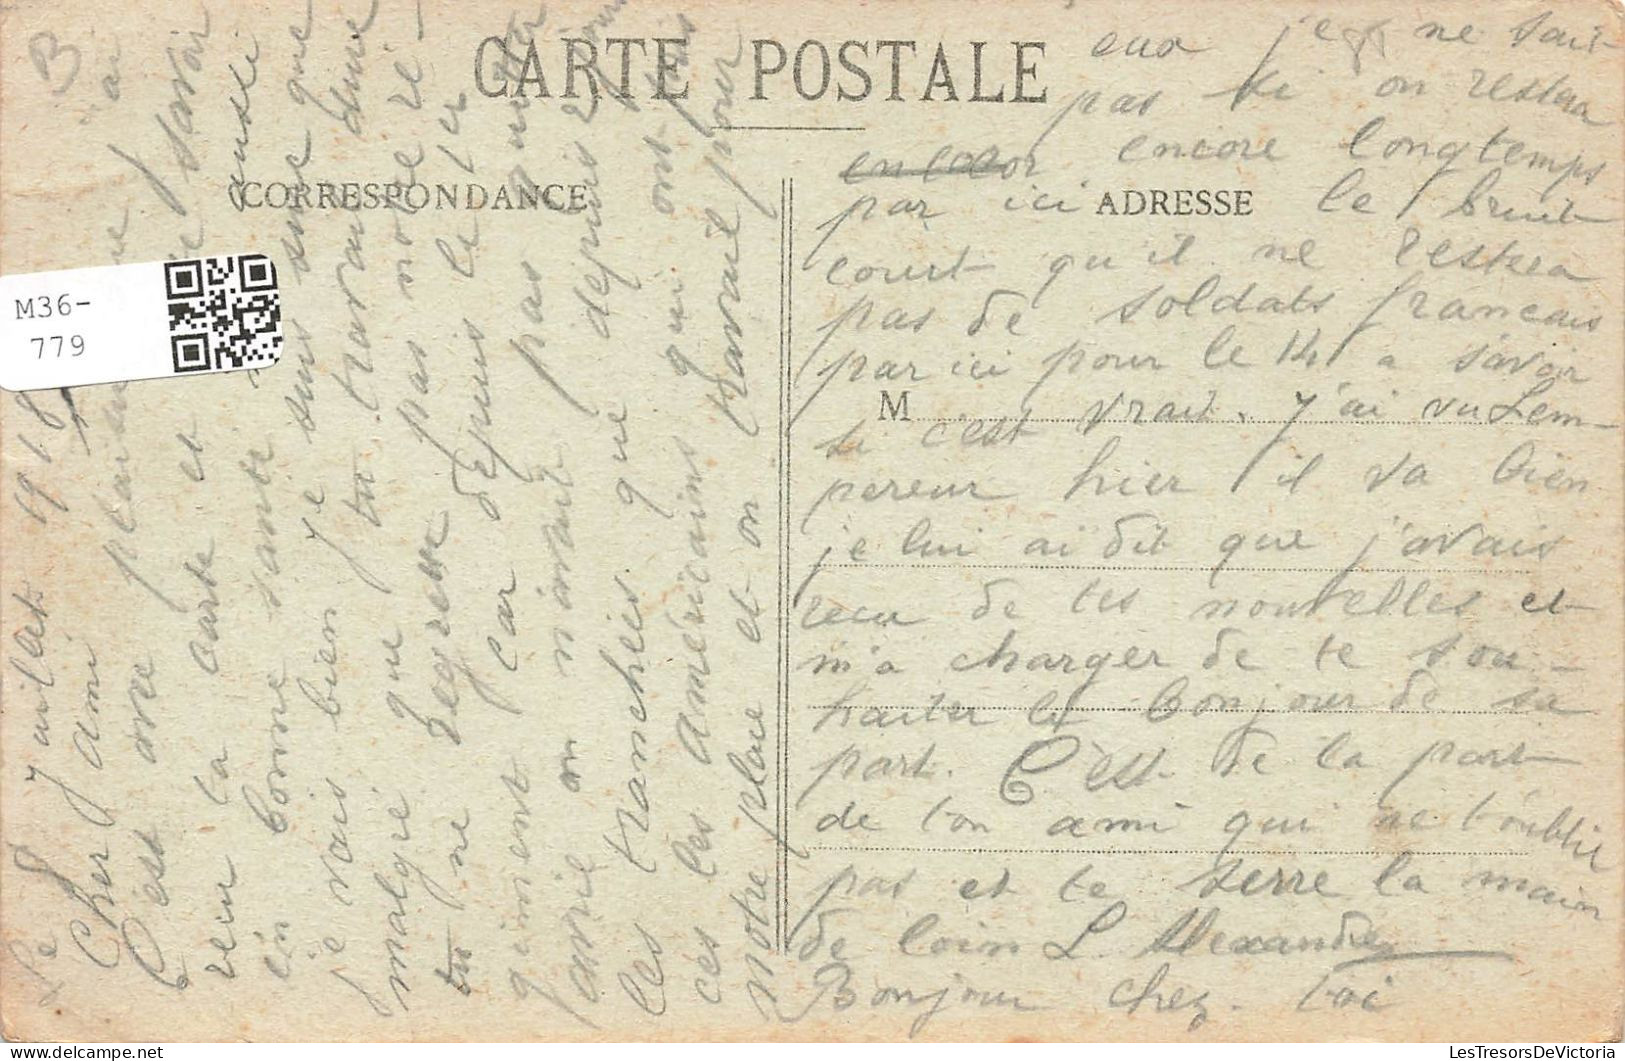 CARTE POSTALE
CORRESPONDANCE
ADRESSE
M
M36-
779
B
Le 7 juillet 1918
Cher ami
C'est avec plaisir que j'ai
reçu ta carte et de savoir
en bonne santé aussi
je vais bien je suis sure que
malgré que tu travail dure
tu ne regrette pas notre ré-
giment car depuis le 1er
avril on n'avait pas quitter
les tranchées que depuis 2 jours
ces les Américains qui ont pris
notre place et on travail pour
eux je ne sait
pas si on restera
encore longtemps
par ici le bruit
court qu'il ne restera
pas de soldats francais
par ici pour le 14 a savoir
si c'est vrait. j'ai vu Lem-
pereur hier il va bien
je lui ai dit que j'avais
recu de tes nouvelles et
m'a charger de te sou-
haiter le bonjour de sa
part. C'est de la part
de ton ami qui ne t'oublie
pas et te serre la main
de loin L. Alexandre
Bonjour chez toi
LesTresorsDeVictoria